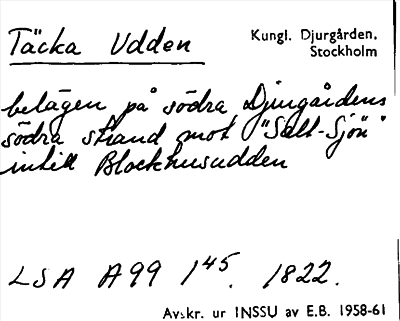 Täcka Udden
Kungl. Djurgården.
Stockholm
belägen på södra Djurgårdens
södra strand mot "Salt-Sjön"
intill Blockhusudden
LSA A99 1 45. 1822.
Avskr. ur INSSU av E.B. 1958-61